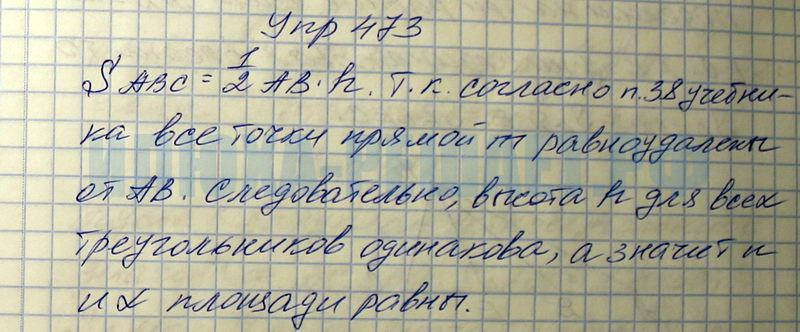 Упр 473
S ABC = 1/2 AB · h. Т.к. согласно п.38 учебни-
ка все точки прямой m равноудалены
от AB. Следовательно, высота h для всех
треугольников одинакова, а значит и
их площади равны.